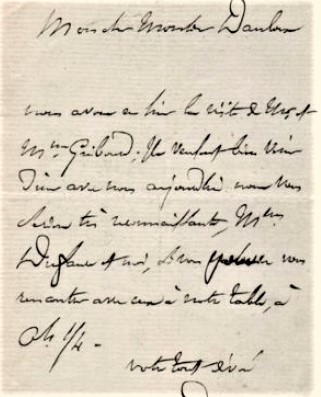 Mon cher Monsieur Daubrée
nous avons eu hier la visite de Mr et
Mme ; Ils veulent bien venir
dîner avec nous aujourdhui. nous vous
serions très reconnaissants, Mme
Dufaure et moi, si vous pouviez vous
rencontrer avec eux à notre table, à
6h 1/4 -
votre tout dévoué